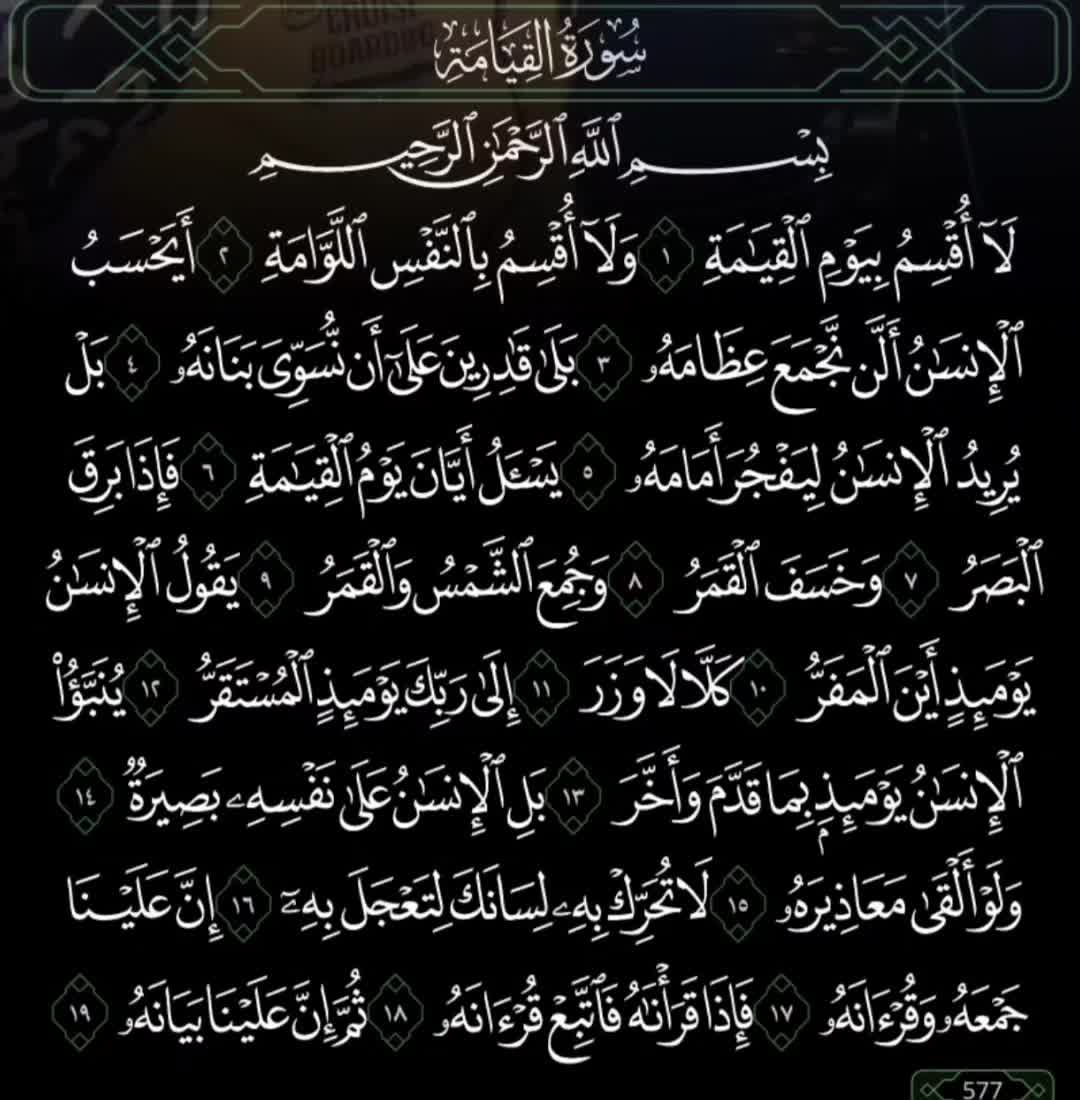 CRUISE
BOARDING
سُورَةُ القِيَامَةِ
بِسْمِ ٱللَّهِ ٱلرَّحْمَٰنِ ٱلرَّحِيمِ
لَآ أُقْسِمُ بِيَوْمِ ٱلْقِيَٰمَةِ ١ وَلَآ أُقْسِمُ بِٱلنَّفْسِ ٱللَّوَّامَةِ ٢ أَيَحْسَبُ
ٱلْإِنسَٰنُ أَلَّن نَّجْمَعَ عِظَامَهُۥ ٣ بَلَىٰ قَٰدِرِينَ عَلَىٰٓ أَن نُّسَوِّىَ بَنَانَهُۥ ٤ بَلْ
يُرِيدُ ٱلْإِنسَٰنُ لِيَفْجُرَ أَمَامَهُۥ ٥ يَسْـَٔلُ أَيَّانَ يَوْمُ ٱلْقِيَٰمَةِ ٦ فَإِذَا بَرِقَ
ٱلْبَصَرُ ٧ وَخَسَفَ ٱلْقَمَرُ ٨ وَجُمِعَ ٱلشَّمْسُ وَٱلْقَمَرُ ٩ يَقُولُ ٱلْإِنسَٰنُ
يَوْمَئِذٍ أَيْنَ ٱلْمَفَرُّ ١٠ كَلَّا لَا وَزَرَ ١١ إِلَىٰ رَبِّكَ يَوْمَئِذٍ ٱلْمُسْتَقَرُّ ١٢ يُنَبَّؤُا۟
ٱلْإِنسَٰنُ يَوْمَئِذٍۭ بِمَا قَدَّمَ وَأَخَّرَ ١٣ بَلِ ٱلْإِنسَٰنُ عَلَىٰ نَفْسِهِۦ بَصِيرَةٌ ١٤
وَلَوْ أَلْقَىٰ مَعَاذِيرَهُۥ ١٥ لَا تُحَرِّكْ بِهِۦ لِسَانَكَ لِتَعْجَلَ بِهِۦٓ ١٦ إِنَّ عَلَيْنَا
جَمْعَهُۥ وَقُرْءَانَهُۥ ١٧ فَإِذَا قَرَأْنَٰهُ فَٱتَّبِعْ قُرْءَانَهُۥ ١٨ ثُمَّ إِنَّ عَلَيْنَا بَيَانَهُۥ ١٩
577